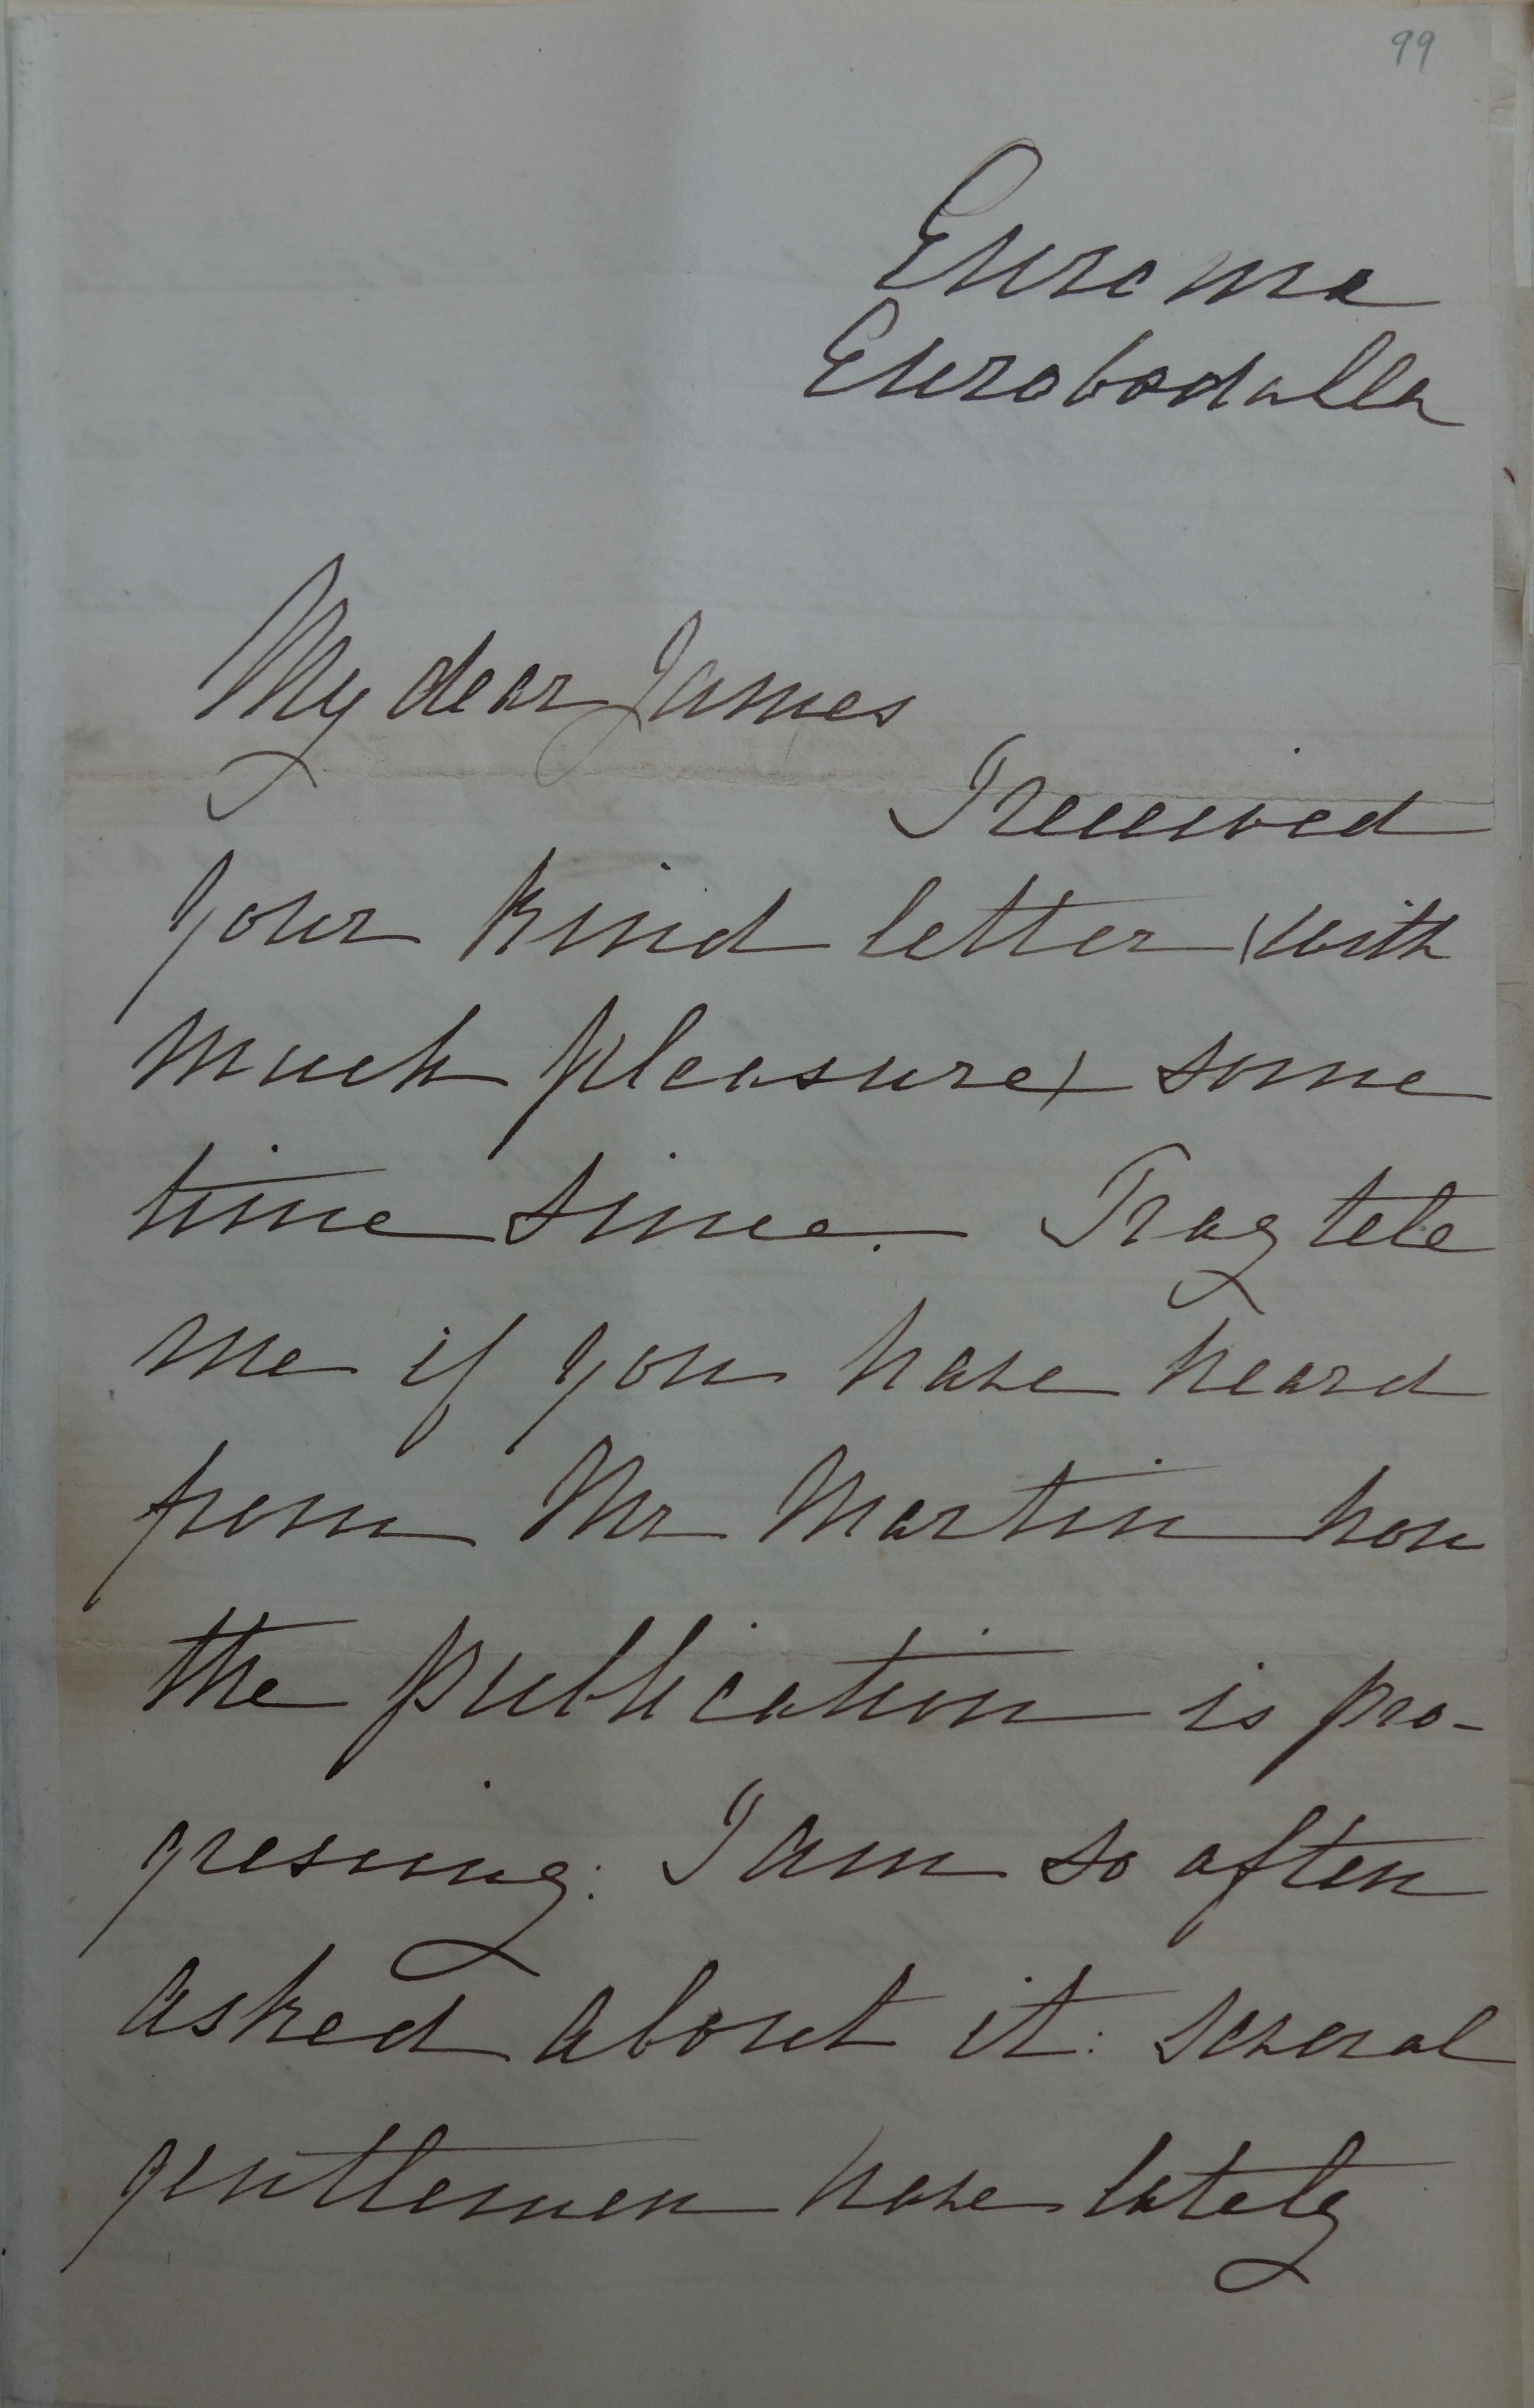 99
Euroma
Eurobodalla
My dear James
I received
your kind letter (with
much pleasure) some
time since. Pray tele
me if you have heard
from Mr Martin how
the publication is pro-
gressing: I am so often
asked about it: several
gentlemen have lately